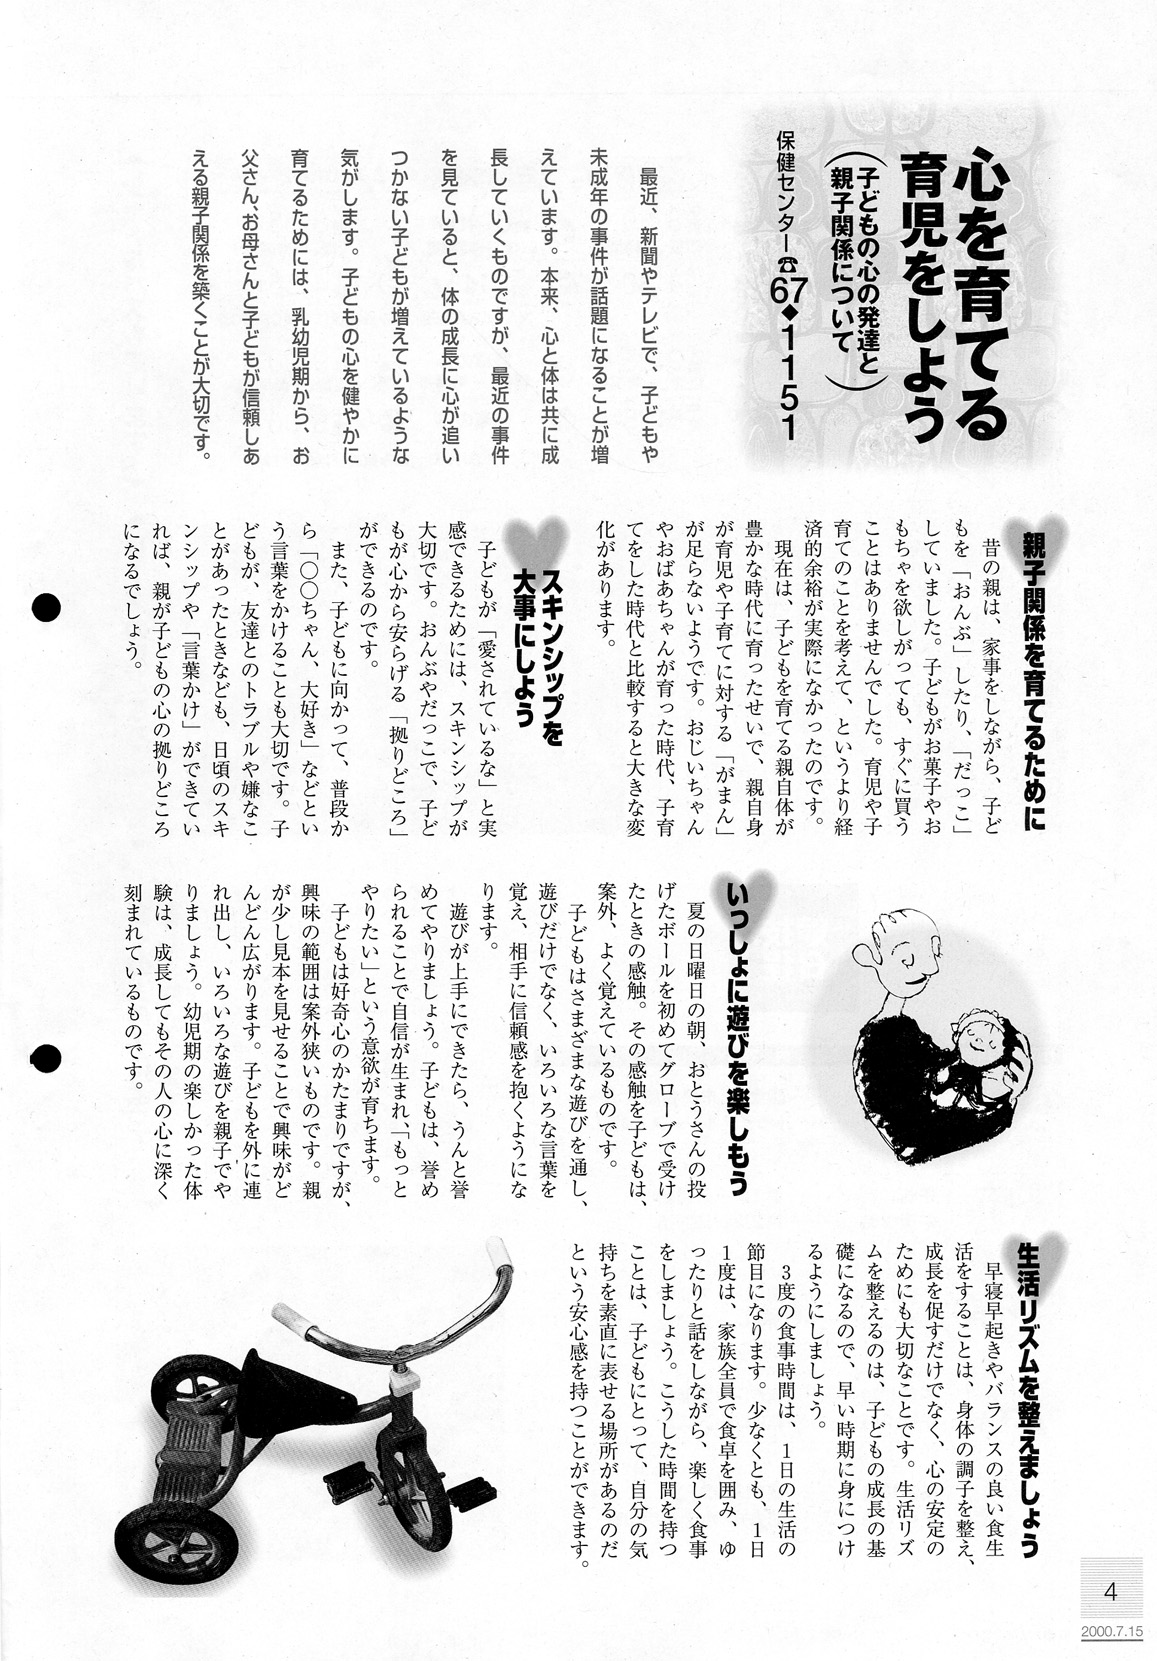 心を育てる
育児をしよう
(子どもの心の発達と
親子関係について)
保健センター☎67◆1151
最近、新聞やテレビで、子どもや
未成年の事件が話題になることが増
えています。本来、心と体は共に成
長していくものですが、最近の事件
を見ていると、体の成長に心が追い
つかない子どもが増えているような
気がします。子どもの心を健やかに
育てるためには、乳幼児期から、お
父さん、お母さんと子どもが信頼しあ
える親子関係を築くことが大切です。
親子関係を育てるために
昔の親は、家事をしながら、子ど
もを「おんぶ」したり、「だっこ」
していました。子どもがお菓子やお
もちゃを欲しがっても、すぐに買う
ことはありませんでした。育児や子
育てのことを考えて、というより経
済的余裕が実際になかったのです。
現在は、子どもを育てる親自体が
豊かな時代に育ったせいで、親自身
が育児や子育てに対する「がまん」
が足らないようです。おじいちゃん
やおばあちゃんが育った時代、子育
てをした時代と比較すると大きな変
化があります。
スキンシップを
大事にしよう
子どもが「愛されているな」と実
感できるためには、スキンシップが
大切です。おんぶやだっこで、子ど
もが心から安らげる「拠りどころ」
ができるのです。
また、子どもに向かって、普段か
ら「〇〇ちゃん、大好き」などとい
う言葉をかけることも大切です。子
どもが、友達とのトラブルや嫌なこ
とがあったときなども、日頃のスキ
ンシップや「言葉かけ」ができてい
れば、親が子どもの心の拠りどころ
になるでしょう。
いっしょに遊びを楽しもう
夏の日曜日の朝、おとうさんの投
げたボールを初めてグローブで受け
たときの感触。その感触を子どもは、
案外、よく覚えているものです。
子どもはさまざまな遊びを通し、
遊びだけでなく、いろいろな言葉を
覚え、相手に信頼感を抱くようにな
ります。
遊びが上手にできたら、うんと誉
めてやりましょう。子どもは、誉め
られることで自信が生まれ、「もっと
やりたい」という意欲が育ちます。
子どもは好奇心のかたまりですが、
興味の範囲は案外狭いものです。親
が少し見本を見せることで興味がど
んどん広がります。子どもを外に連
れ出し、いろいろな遊びを親子でや
りましょう。幼児期の楽しかった体
験は、成長してもその人の心に深く
刻まれているものです。
生活リズムを整えましょう
早寝早起きやバランスの良い食生
活をすることは、身体の調子を整え、
成長を促すだけでなく、心の安定の
ためにも大切なことです。生活リズ
ムを整えるのは、子どもの成長の基
礎になるので、早い時期に身につけ
るようにしましょう。
3度の食事時間は、1日の生活の
節目になります。少なくとも、1日
1度は、家族全員で食卓を囲み、ゆ
ったりと話をしながら、楽しく食事
をしましょう。こうした時間を持つ
ことは、子どもにとって、自分の気
持ちを素直に表せる場所があるのだ
という安心感を持つことができます。
4
2000.7.15